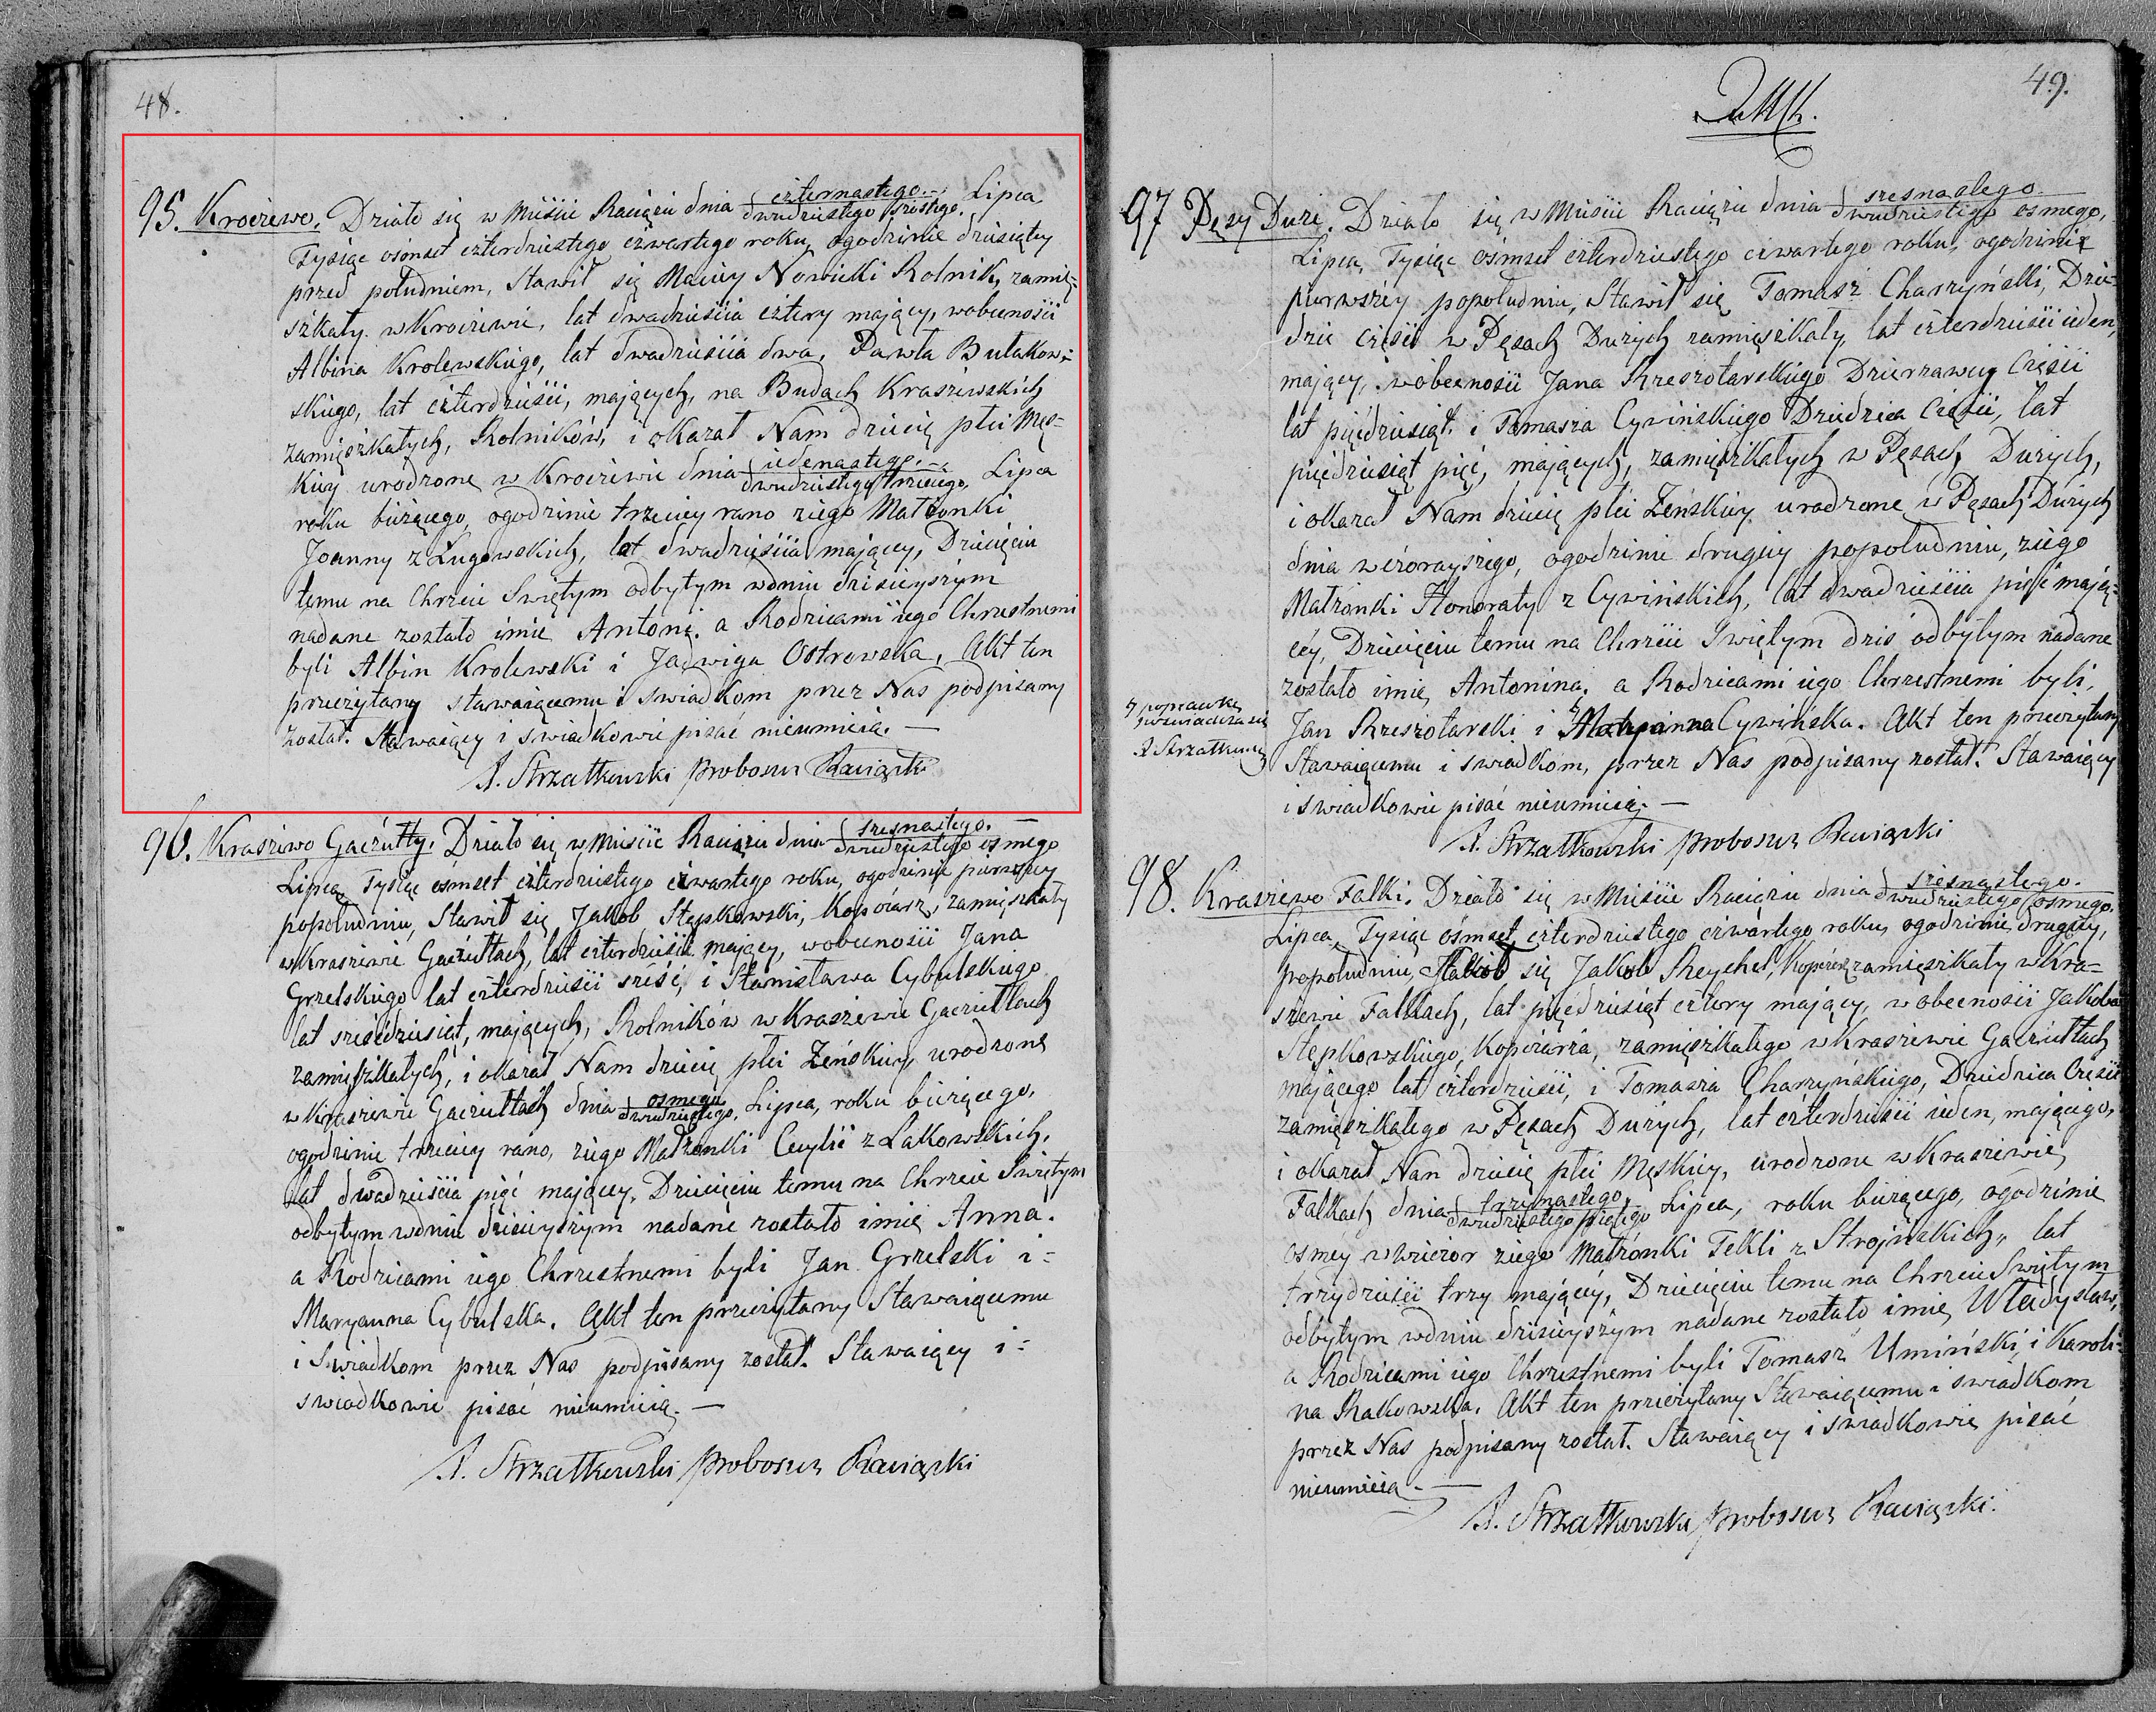 48.
95. Krociewo. Działo się w Mieście Raciążu dnia czternastego Lipca
dwudziestego szostego
Tysiąc ośmset czterdziestego czwartego roku, ogodzinie dziesiątey
przed południem, Stawił się Maciey Nowicki Rolnik, zamię-
szkały w Krociewie, lat dwadzieścia cztery maiący, wobecności
Albina Krolewskiego, lat dwadzieścia dwa, Pawła Bułakow-
skiego, lat czterdzieści, maiących, na Budach Kraszewskich
zamięszkałych, Rolników, i okazał Nam dziecię płci Męs-
kiey urodzone w Krociewie dnia iedenastego Lipca
dwudziestego trzeciego
roku bieżącego, ogodzinie trzeciey rano ziego Małżonki
Joanny z Ługowskich, lat dwadzieścia maiącey, Dziecięciu
temu na Chrzcie Swiętym odbytym wdniu dzisieyszym
nadane zostało imie Antoni. a Rodzicami iego Chrzestnemi
byli Albin Krolewski i Jadwiga Ostrowska. Akt ten
przeczytany stawaiącemu i swiadkom przez Nas podpisany
został. Stawaiący i swiadkowie pisać nieumieią. —
A. Strzałkowski Proboszcz Raciązki
96. Krasziewo Gaczułty. Działo się w Mieście Raciążu dnia szesnastego —
dwudziestego osmego
Lipca, Tysiąc ośmset czterdziestego czwartego roku, ogodzinie pierwszey
popołudniu, Stawił się Jakob Stępkowski, Kopciarz, zamięszkały
w Krasziewie Gaczułtach, lat czterdzieści maiący, wobecności Jana
Grzelskiego lat czterdzieści sześć, i Stanisława Cybulskiego
lat sześćdziesiąt, maiących, Rolników w Krasziewie Gaczułtach
zamięszkałych, i okazał Nam dziecię płci Żeńskiey urodzone
w Krasziewie Gaczułtach dnia osmego Lipca, roku bieżącego,
dwudziestego
ogodzinie trzeciey rano, ziego Małżonki Cecylii z Łakowskich,
lat dwadzieścia pięć maiącey, Dziecięciu temu na Chrzcie Swiętym
odbytym wdniu dzisieyszym nadane zostało imię Anna.
a Rodzicami iego Chrzestnemi byli Jan Grzelski i-
Maryanna Cybulska. Akt ten przeczytany Stawaiącemu
i Swiadkom przez Nas podpisany został. Stawaiący i-
swiadkowie pisać nieumieią. —
A. Strzałkowski Proboszcz Raciązki
49.
97 Pęsy Duże. Działo się w Mieście Raciążu dnia szesnastego
dwudziestego osmego,
Lipca, Tysiąc ośmset czterdziestego czwartego roku, ogodzinie
pierwszey popołudniu, Stawił się Tomasz Charzyński, Dzie-
dzic części w Pęsach Dużych zamięszkały, lat czterdzieści ieden,
maiący, wobecności Jana Rzeszotarskiego Dzierzawcy Części
lat pięćdziesiąt. i Tomasza Cywińskiego Dziedzica Części, lat
pięćdziesiąt pięć, maiących, zamięszkałych w Pęsach Dużych,
i okazał Nam dziecię płci Żeńskiey urodzone w Pęsach Dużych
dnia wczorayszego, ogodzinie drugiey popołudniu, ziego
Małżonki Honoraty z Cywińskich, lat dwadzieścia pięć maią-
cey, Dziecięciu temu na Chrzcie Swiętym dziś odbytym nadane
zostało imię Antonina. a Rodzicami iego Chrzestnemi byli,
Jan Rzeszotarski i Maryanna Cywińska. Akt ten przeczytany
poprawkę
poswiadcza się
A Strzałkowski
Stawaiącemu i swiadkom, przez Nas podpisany został. Stawaiący
i swiadkowie pisać nieumieią. —
A. Strzałkowski Proboszcz Raciązki
98. Krasziewo Falki. Działo się w Mieście Raciążu dnia szesnastego
dwudziestego osmego
Lipca, Tysiąc ośmset czterdziestego czwartego roku, ogodzinie drugiey,
popołudniu, Stawił się Jakob Reychel, Kopciarz zamięszkały w Kra-
sziewie Falkach, lat pięćdziesiąt cztery maiący, wobecności Jakoba
Stępkowskiego, Kopciarza, zamięszkałego w Krasziewie Gaczułtach
maiącego lat czterdzieści, i Tomasza Charzyńskiego, Dziedzica Części
zamięszkałego w Pęsach Dużych, lat czterdzieści ieden, maiącego,
i okazał Nam dziecię płci Męskiey, urodzone w Krasziewie
Falkach dnia trzynastego Lipca, roku bieżącego, ogodzinie
dwudziestego piątego
osmey wwieczor ziego Małżonki Tekli z Stroińskich, lat
trzydzieści trzy maiącey, Dziecięciu temu na Chrzcie Swiętym
odbytym wdniu dzisieyszym nadane zostało imię Władysław,
a Rodzicami iego Chrzestnemi byli Tomasz Umiński, i Karoli-
na Rakowska. Akt ten przeczytany Stawaiącemu i swiadkom
przez Nas podpisany został. Stawaiący i swiadkowie pisać
nieumieią. —
A. Strzałkowski Proboszcz Raciązki.